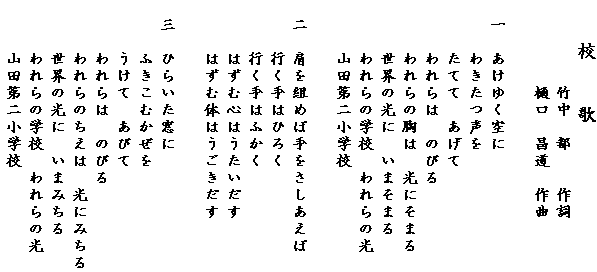 校歌
竹中 郁 作詞
樋口 昌道 作曲
一
あけゆく空に
わきたつ声を
たてて あげて
われらは のびる
われらの胸は 光にそまる
世界の光に いまそまる
われらの学校 われらの光
山田第二小学校
二
肩を組めば手をさしあえば
行く手はひろく
行く手はふかく
はずむ心はうたいだす
はずむ体はうごきだす
三
ひらいた窓に
ふきこむかぜを
うけて あびて
われらは のびる
われらのちえは 光にみちる
世界の光に いまみちる
われらの学校 われらの光
山田第二小学校